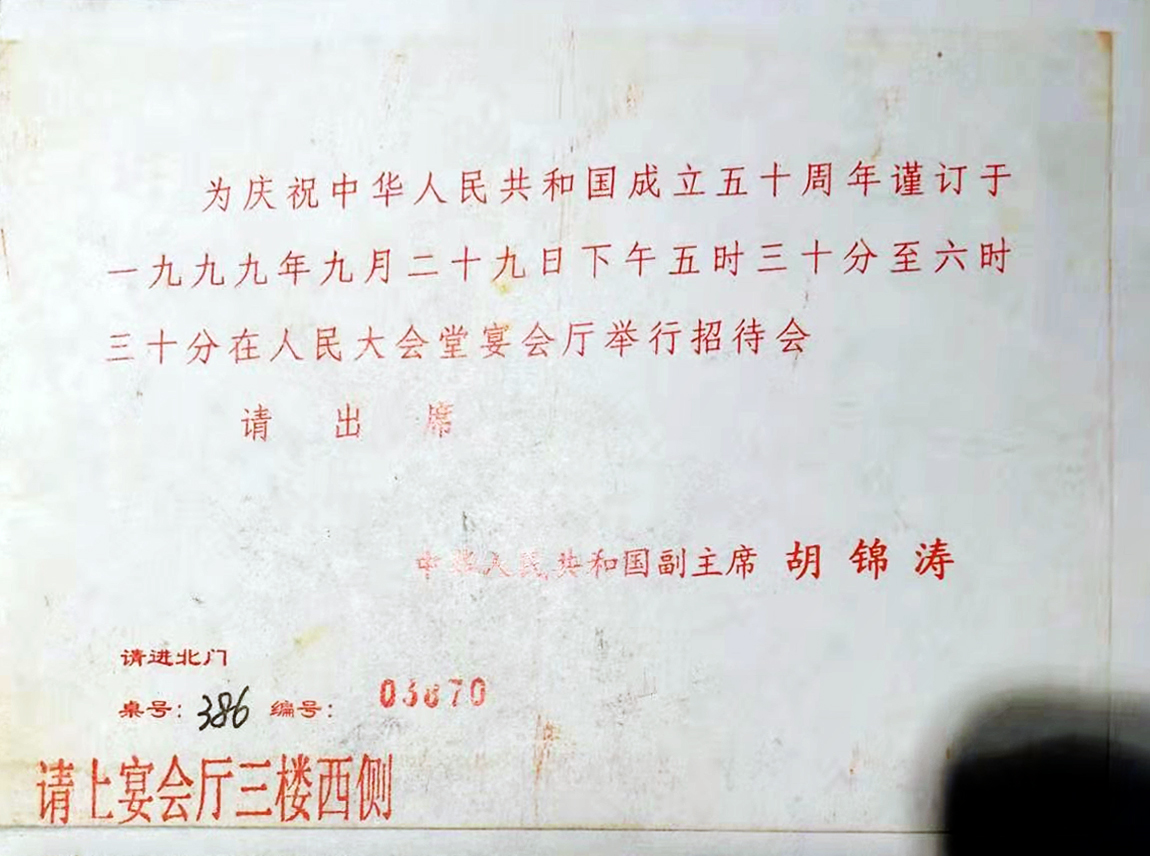 为庆祝中华人民共和国成立五十周年谨订于
一九九九年九月二十九日下午五时三十分至六时
三十分在人民大会堂宴会厅举行招待会
请出席
中华人民共和国副主席 胡锦涛
请进北门
桌号：386 编号：03870
请上宴会厅三楼西侧